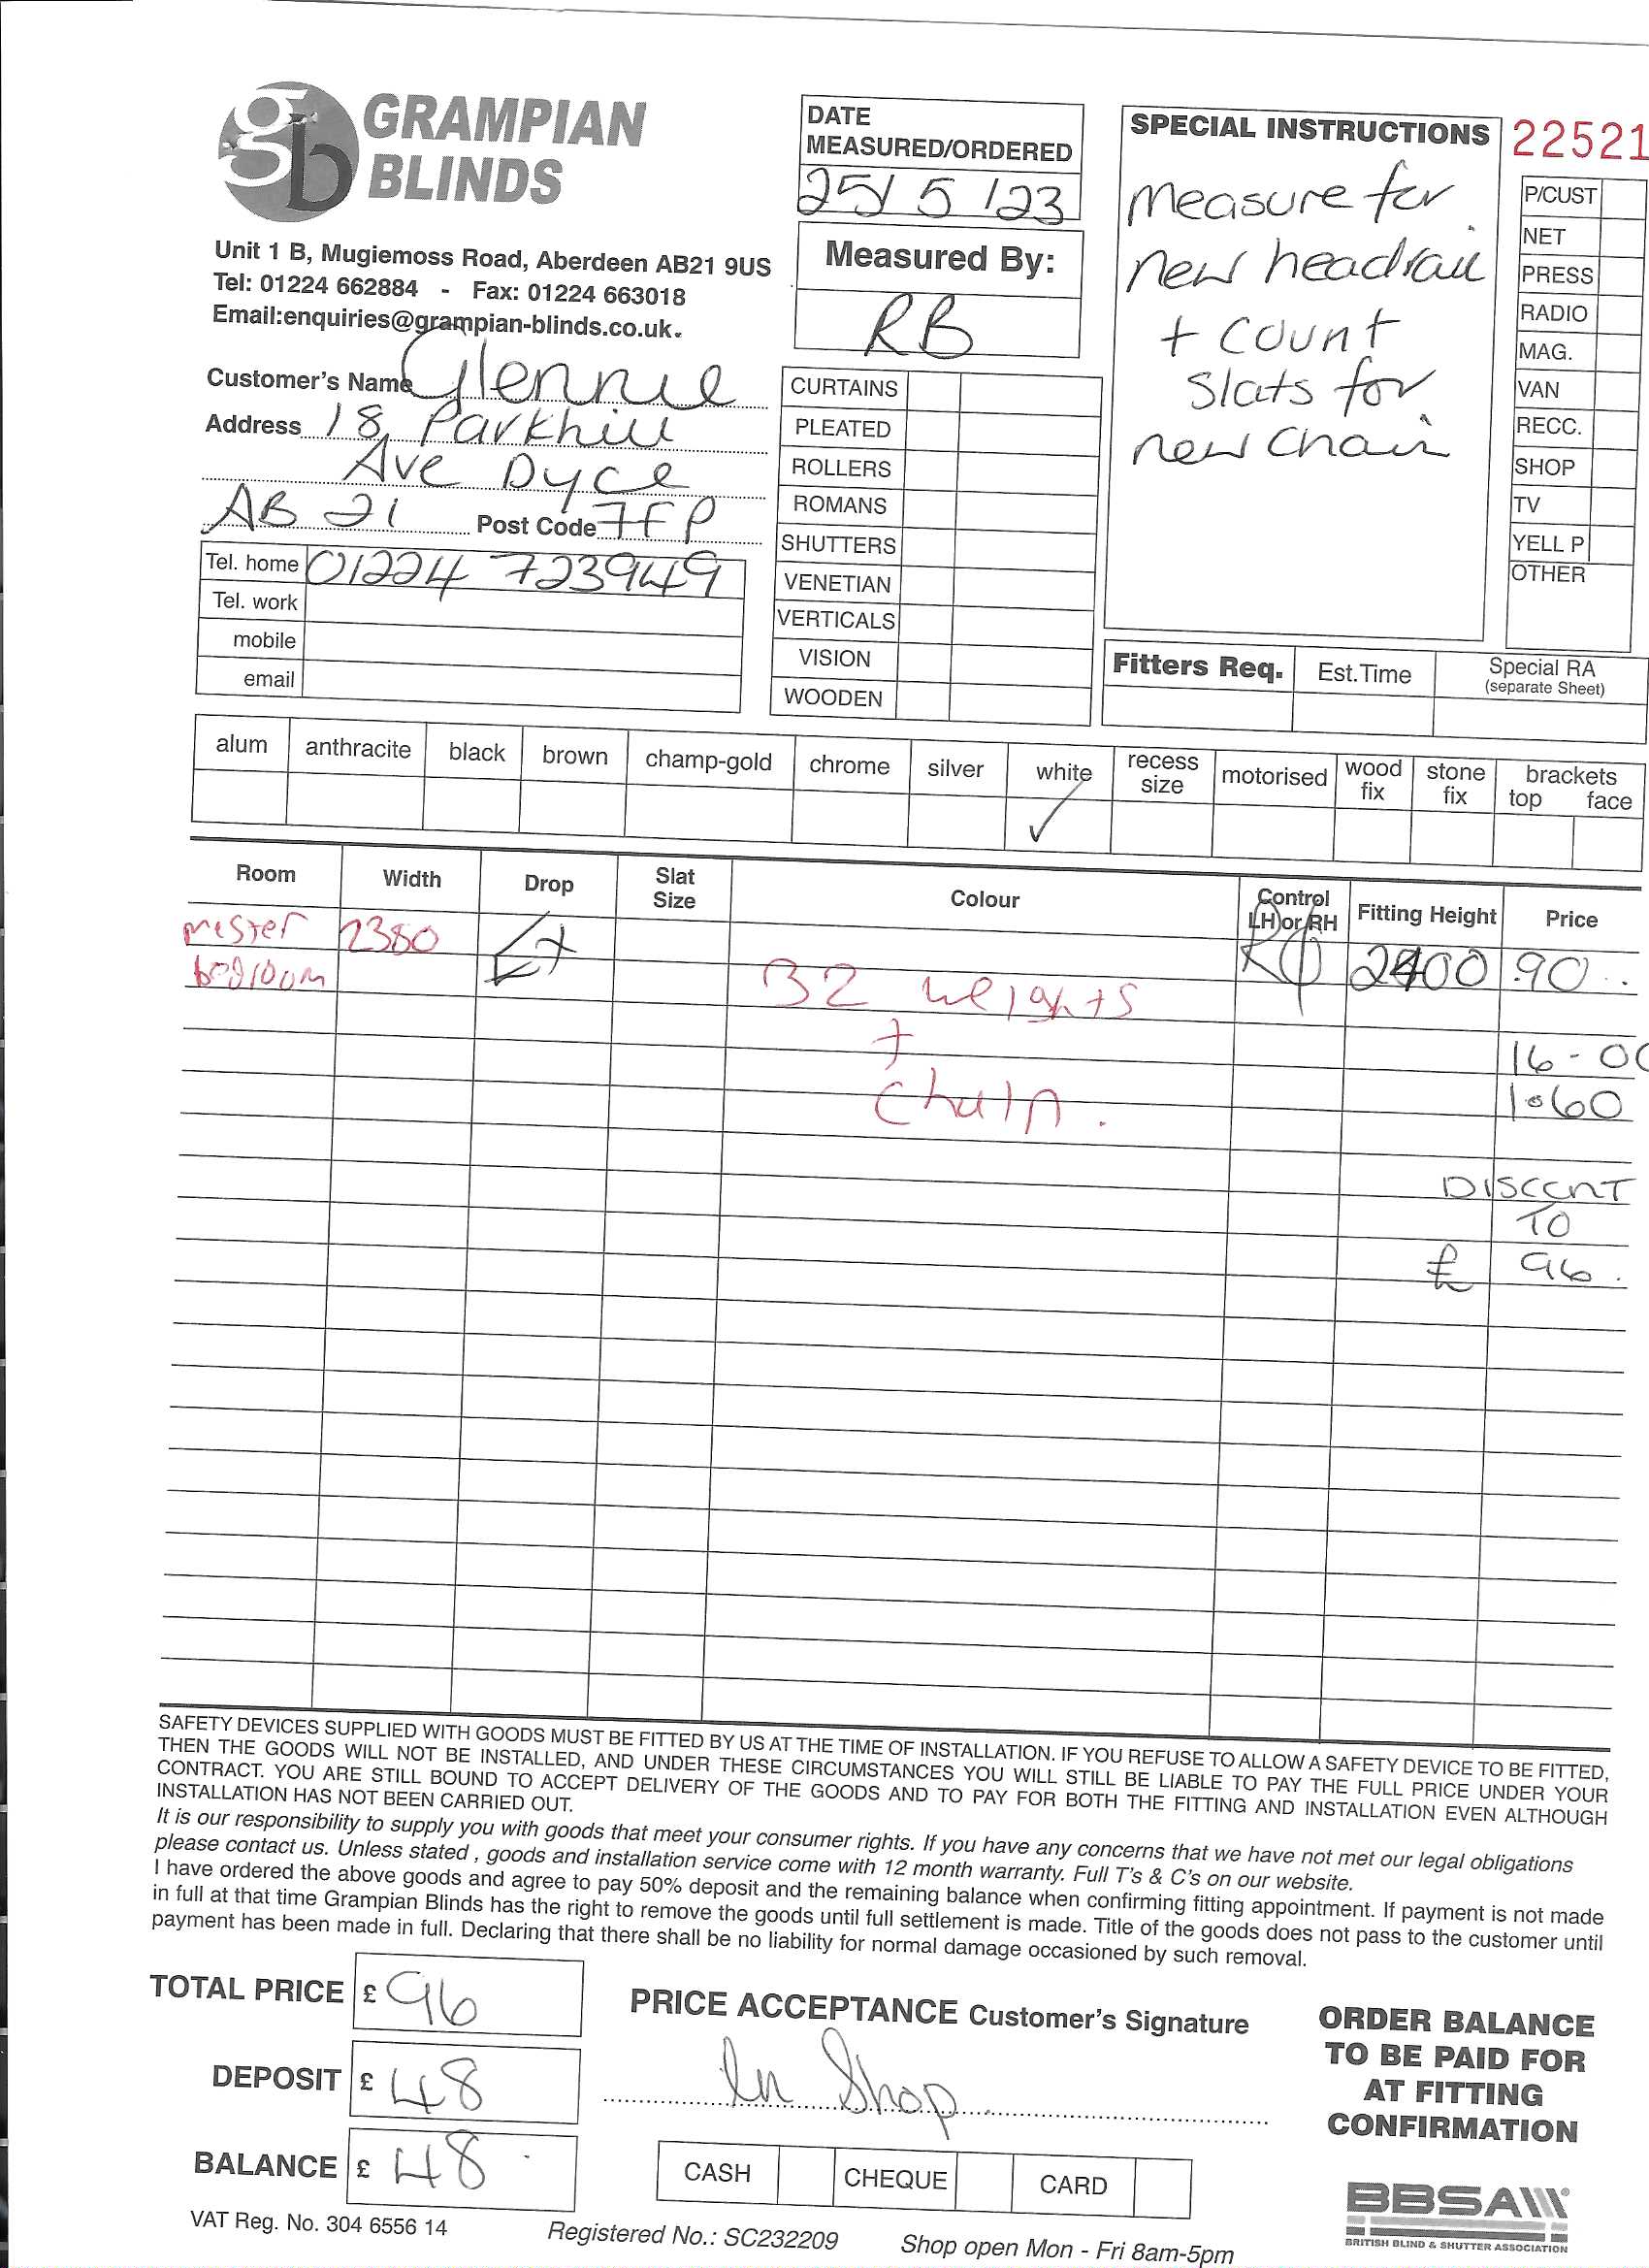 gb GRAMPIAN
BLINDS
Unit 1 B, Mugiemoss Road, Aberdeen AB21 9US
Tel: 01224 662884 - Fax: 01224 663018
Email:enquiries@grampian-blinds.co.uk.
Customer's Name Glennie
Address 18, Parkhill
Ave Dyce
AB 21 Post Code 7FP
Tel. home 01224 723949
Tel. work
mobile
email
DATE
MEASURED/ORDERED
25/5/23
Measured By:
RB
CURTAINS
PLEATED
ROLLERS
ROMANS
SHUTTERS
VENETIAN
VERTICALS
VISION
WOODEN
SPECIAL INSTRUCTIONS
measure for
new headrail
+ count
slats for
new chain
22521
P/CUST
NET
PRESS
RADIO
MAG.
VAN
RECC.
SHOP
TV
YELL P
OTHER
Fitters Req. Est.Time Special RA
(separate Sheet)
alum anthracite black brown champ-gold chrome silver white recess size motorised wood fix stone fix brackets
top face
✓
Room Width Drop Slat Size Colour Control LH or RH Fitting Height Price
master 2380 2400 90
bedroom
32 weights
+
chain.
16-00
1.60
DISCONT
TO
£ 96.
SAFETY DEVICES SUPPLIED WITH GOODS MUST BE FITTED BY US AT THE TIME OF INSTALLATION. IF YOU REFUSE TO ALLOW A SAFETY DEVICE TO BE FITTED,
THEN THE GOODS WILL NOT BE INSTALLED, AND UNDER THESE CIRCUMSTANCES YOU WILL STILL BE LIABLE TO PAY THE FULL PRICE UNDER YOUR
CONTRACT. YOU ARE STILL BOUND TO ACCEPT DELIVERY OF THE GOODS AND TO PAY FOR BOTH THE FITTING AND INSTALLATION EVEN ALTHOUGH
INSTALLATION HAS NOT BEEN CARRIED OUT.
It is our responsibility to supply you with goods that meet your consumer rights. If you have any concerns that we have not met our legal obligations
please contact us. Unless stated , goods and installation service come with 12 month warranty. Full T's & C's on our website.
I have ordered the above goods and agree to pay 50% deposit and the remaining balance when confirming fitting appointment. If payment is not made
in full at that time Grampian Blinds has the right to remove the goods until full settlement is made. Title of the goods does not pass to the customer until
payment has been made in full. Declaring that there shall be no liability for normal damage occasioned by such removal.
TOTAL PRICE £ 96
DEPOSIT £ 48
BALANCE £ 48
PRICE ACCEPTANCE Customer's Signature
In Shop
CASH CHEQUE CARD
ORDER BALANCE
TO BE PAID FOR
AT FITTING
CONFIRMATION
BBSA
BRITISH BLIND & SHUTTER ASSOCIATION
VAT Reg. No. 304 6556 14 Registered No.: SC232209 Shop open Mon - Fri 8am-5pm